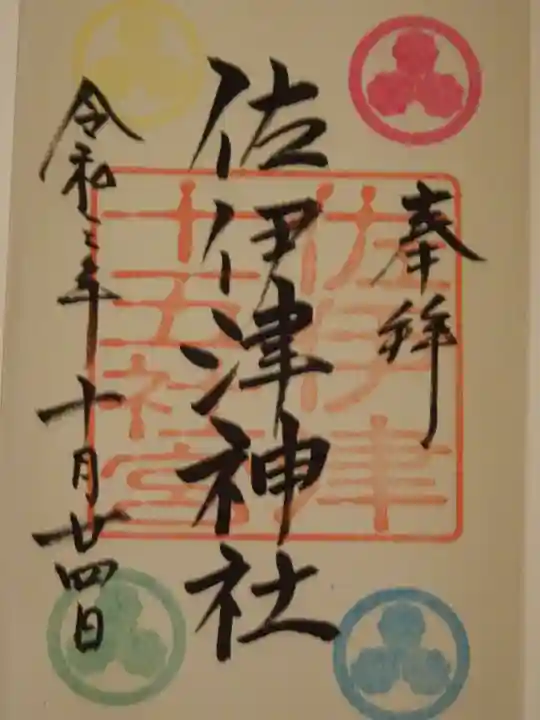 奉拝
佐伊津神社
佐伊津
十五社宮
令和三年十月廿四日